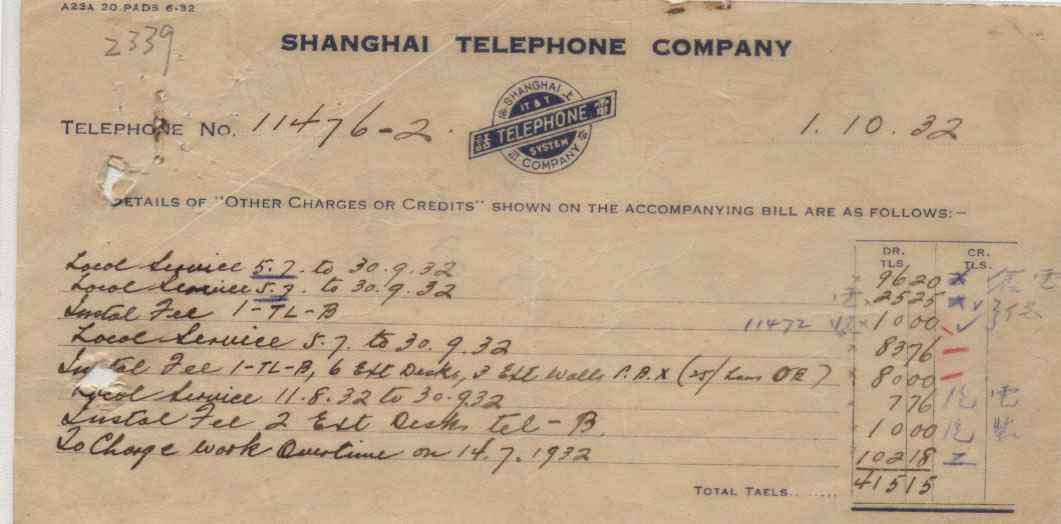 A23A 20 PADS 6-32
2339
SHANGHAI TELEPHONE COMPANY
SHANGHAI 上
IT & T
TELEPHONE
SYSTEM
COMPANY
TELEPHONE NO. 11476-2. 1. 10. 32
DETAILS OF "OTHER CHARGES OR CREDITS" SHOWN ON THE ACCOMPANYING BILL ARE AS FOLLOWS:-
DR. CR.
TLS. TLS.
Local Service 5.7. to 30.9.32 9620
Local Service 5.7. to 30.9.32 2525
Instal Fee 1-TL-B 11472 1000
Local Service 5.7. to 30.9.32 8376
Instal Fee 1-TL-B, 6 Ext Desks, 3 Ext Walls P.B.X (25/ Less ) 8000
Local Service 11.8.32 to 30.9.32 776
Instal Fee 2 Ext Desks tel-B. 1000
To Charge work Overtime on 14.7.1932 10218
TOTAL TAELS........ 41515